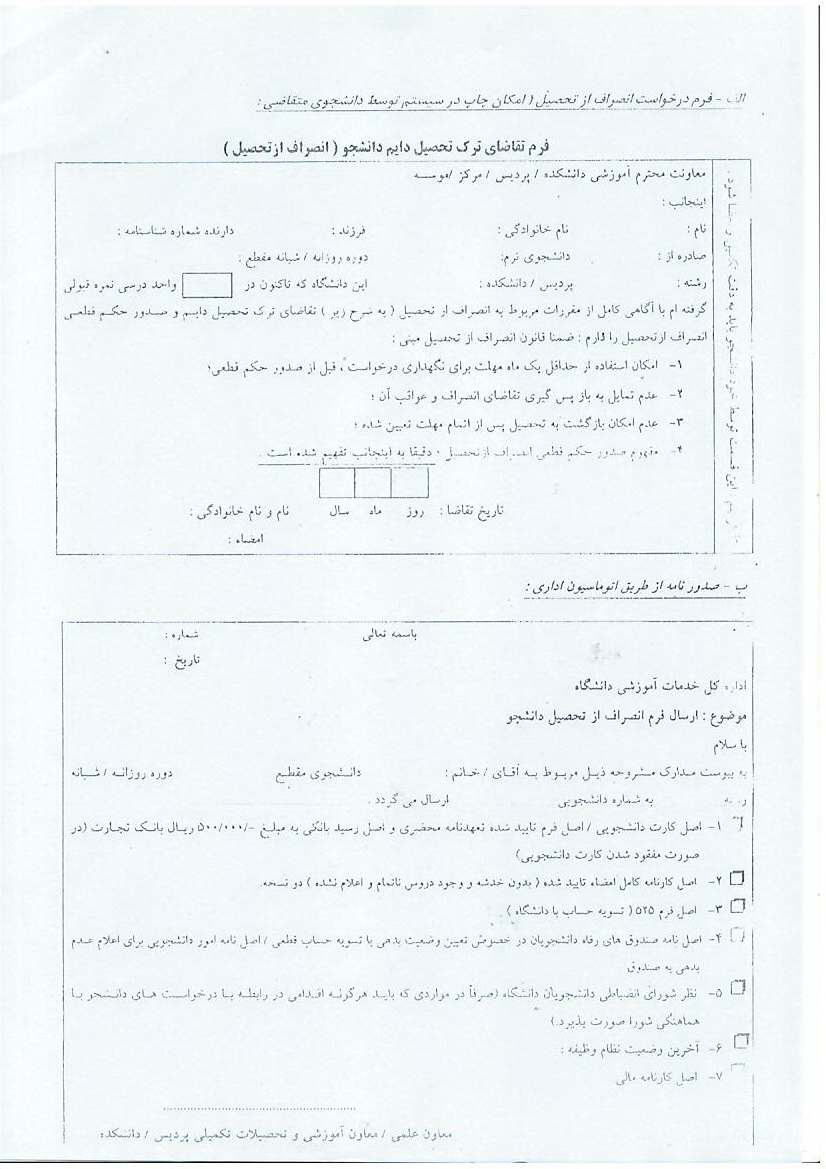 الف - فرم درخواست انصراف از تحصیل ( امکان چاپ در سیستم توسط دانشجوی متقاضی :
فرم تقاضای ترک تحصیل دایم دانشجو ( انصراف ازتحصیل )
معاونت محترم آموزشی دانشکده / پردیس / مرکز /موسسه
اینجانب :
نام : نام خانوادگی : فرزند : دارنده شماره شناسنامه :
صادره از : دانشجوی ترم: دوره روزانه / شبانه مقطع :
رشته : پردیس / دانشکده : این دانشگاه که تاکنون در واحد درسی نمره قبولی
گرفته ام با آگاهی کامل از مقررات مربوط به انصراف از تحصیل ( به شرح زیر ) تقاضای ترک تحصیل دایم و صدور حکم قطعی
انصراف ازتحصیل را دارم : ضمنا قانون انصراف از تحصیل مبنی :
۱- امکان استفاده از حداقل یک ماه مهلت برای نگهداری درخواست ، قبل از صدور حکم قطعی؛
۲- عدم تمایل به باز پس گیری تقاضای انصراف و عواقب آن ؛
۳- عدم امکان بازگشت به تحصیل پس از اتمام مهلت تعیین شده ؛
۴- مفهوم صدور حکم قطعی انصراف ازتحصیل ، دقیقا به اینجانب تفهیم شده است .
تاریخ تقاضا : روز ماه سال نام و نام خانوادگی :
امضاء :
این قسمت توسط خود دانشجو باید به دقت تکمیل و امضا شود .
ب - صدور نامه از طریق اتوماسیون اداری :
باسمه تعالی شماره :
تاریخ :
اداره کل خدمات آموزشی دانشگاه
موضوع : ارسال فرم انصراف از تحصیل دانشجو
با سلام
به پیوست مدارک مشروحه ذیل مربوط به آقای / خانم : دانشجوی مقطع دوره روزانه / شبانه
رشته به شماره دانشجویی ارسال می گردد .
۱- اصل کارت دانشجویی / اصل فرم تایید شده تعهدنامه محضری و اصل رسید بانکی به مبلغ -/۵۰۰/۰۰۰ ریال بانک تجارت (در
صورت مفقود شدن کارت دانشجویی)
۲- اصل کارنامه کامل امضاء تایید شده ( بدون خدشه و وجود دروس ناتمام و اعلام نشده ) دو نسخه.
۳- اصل فرم ۵۲۵ ( تسویه حساب با دانشگاه )
۴- اصل نامه صندوق های رفاه دانشجویان در خصوص تعیین وضعیت بدهی یا تسویه حساب قطعی / اصل نامه امور دانشجویی برای اعلام عدم
بدهی به صندوق
۵- نظر شورای انضباطی دانشجویان دانشگاه (صرفاً در مواردی که باید هرگونه اقدامی در رابطه با درخواست های دانشجو با
هماهنگی شورا صورت پذیرد.)
۶- آخرین وضعیت نظام وظیفه :
۷- اصل کارنامه مالی
معاون علمی / معاون آموزشی و تحصیلات تکمیلی پردیس / دانشکده